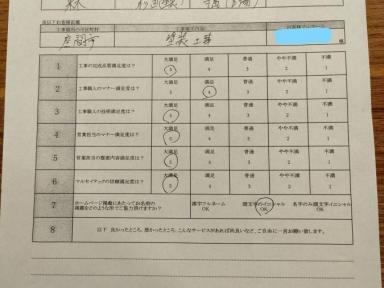 工事箇所の市区町村 工事種類(内容)
座間市 塗装工事 様
1 工事の完成品質満足度は? 大満足 満足 普通 やや不満 不満
5 4 3 2 1
2 工事職人のマナー満足度は? 大満足 満足 普通 やや不満 不満
5 4 3 2 1
3 工事職人の技術満足度は? 大満足 満足 普通 やや不満 不満
5 4 3 2 1
4 営業担当のマナー満足度は? 大満足 満足 普通 やや不満 不満
5 4 3 2 1
5 営業担当の提案内容満足度は? 大満足 満足 普通 やや不満 不満
5 4 3 2 1
6 マルセイテックの信頼満足度は? 大満足 満足 普通 やや不満 不満
5 4 3 2 1
7 ホームページ掲載にあたってお名前の
掲載をどのような形でご協力頂けますか? 漢字フルネーム OK 頭文字のイニシャル OK 名字のみ頭文字イニシャル OK
8 以下 良かったところ、悪かったところ、こんなサービスがあれば尚良いなど、ご自由に一言お願い致します。